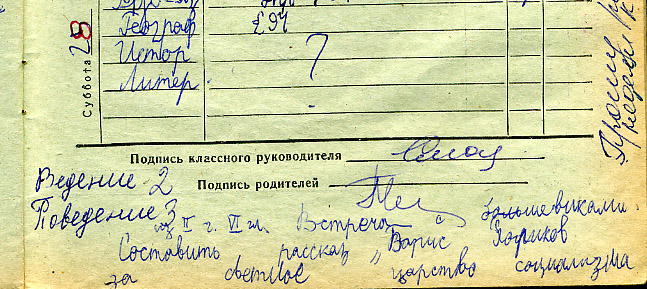 Суббота 28
Географ §94
Истор 7
Литер -
Прошу
Подпись классного руководителя
Ведение 2 Подпись родителей
Поведение 3
из II г. VI гл. Встреча с большевиками.
Составить рассказ „Борис
за светлое царство социализма